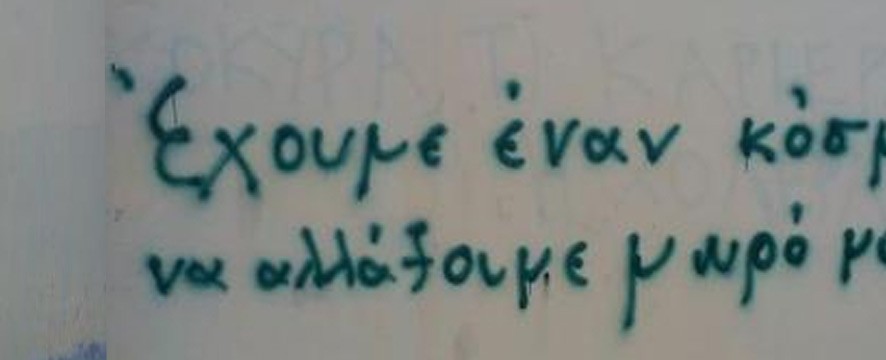 Έχουμε έναν κόσμ
να αλλάξουμε μωρό μο